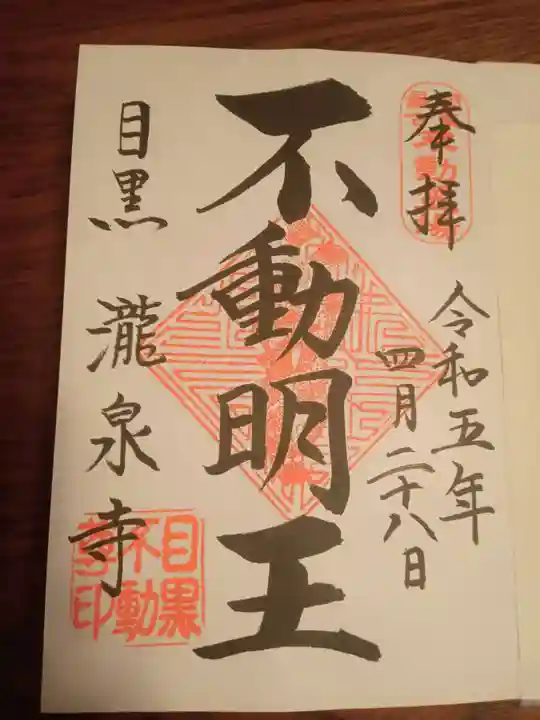 奉拝
令和五年
四月二十八日
不動明王
目黒 瀧泉寺
目黒
不動
尊印